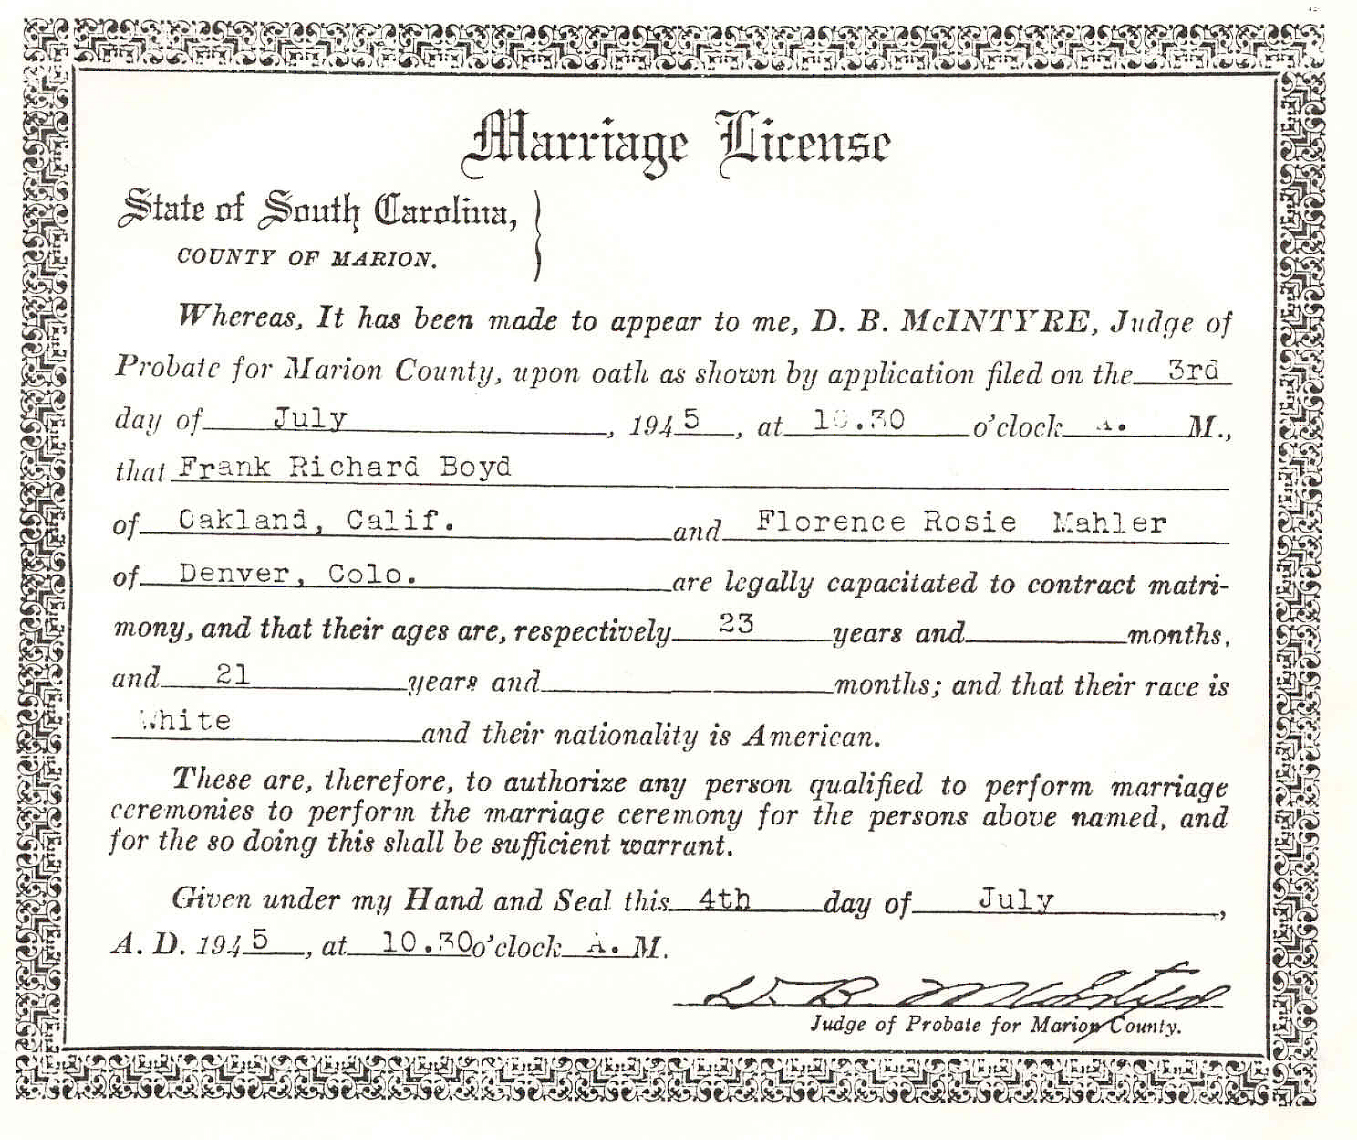 Marriage License
State of South Carolina,
COUNTY OF MARION.
Whereas, It has been made to appear to me, D. B. McINTYRE, Judge of
Probate for Marion County, upon oath as shown by application filed on the 3rd
day of July, 1945, at 10.30 o'clock A. M.,
that Frank Richard Boyd
of Oakland, Calif. and Florence Rosie Mahler
of Denver, Colo. are legally capacitated to contract matri-
mony, and that their ages are, respectively 23 years and months,
and 21 years and months; and that their race is
White and their nationality is American.
These are, therefore, to authorize any person qualified to perform marriage
ceremonies to perform the marriage ceremony for the persons above named, and
for the so doing this shall be sufficient warrant.
Given under my Hand and Seal this 4th day of July,
A. D. 1945, at 10.30 o'clock A. M.
D. B. McIntyre
Judge of Probate for Marion County.